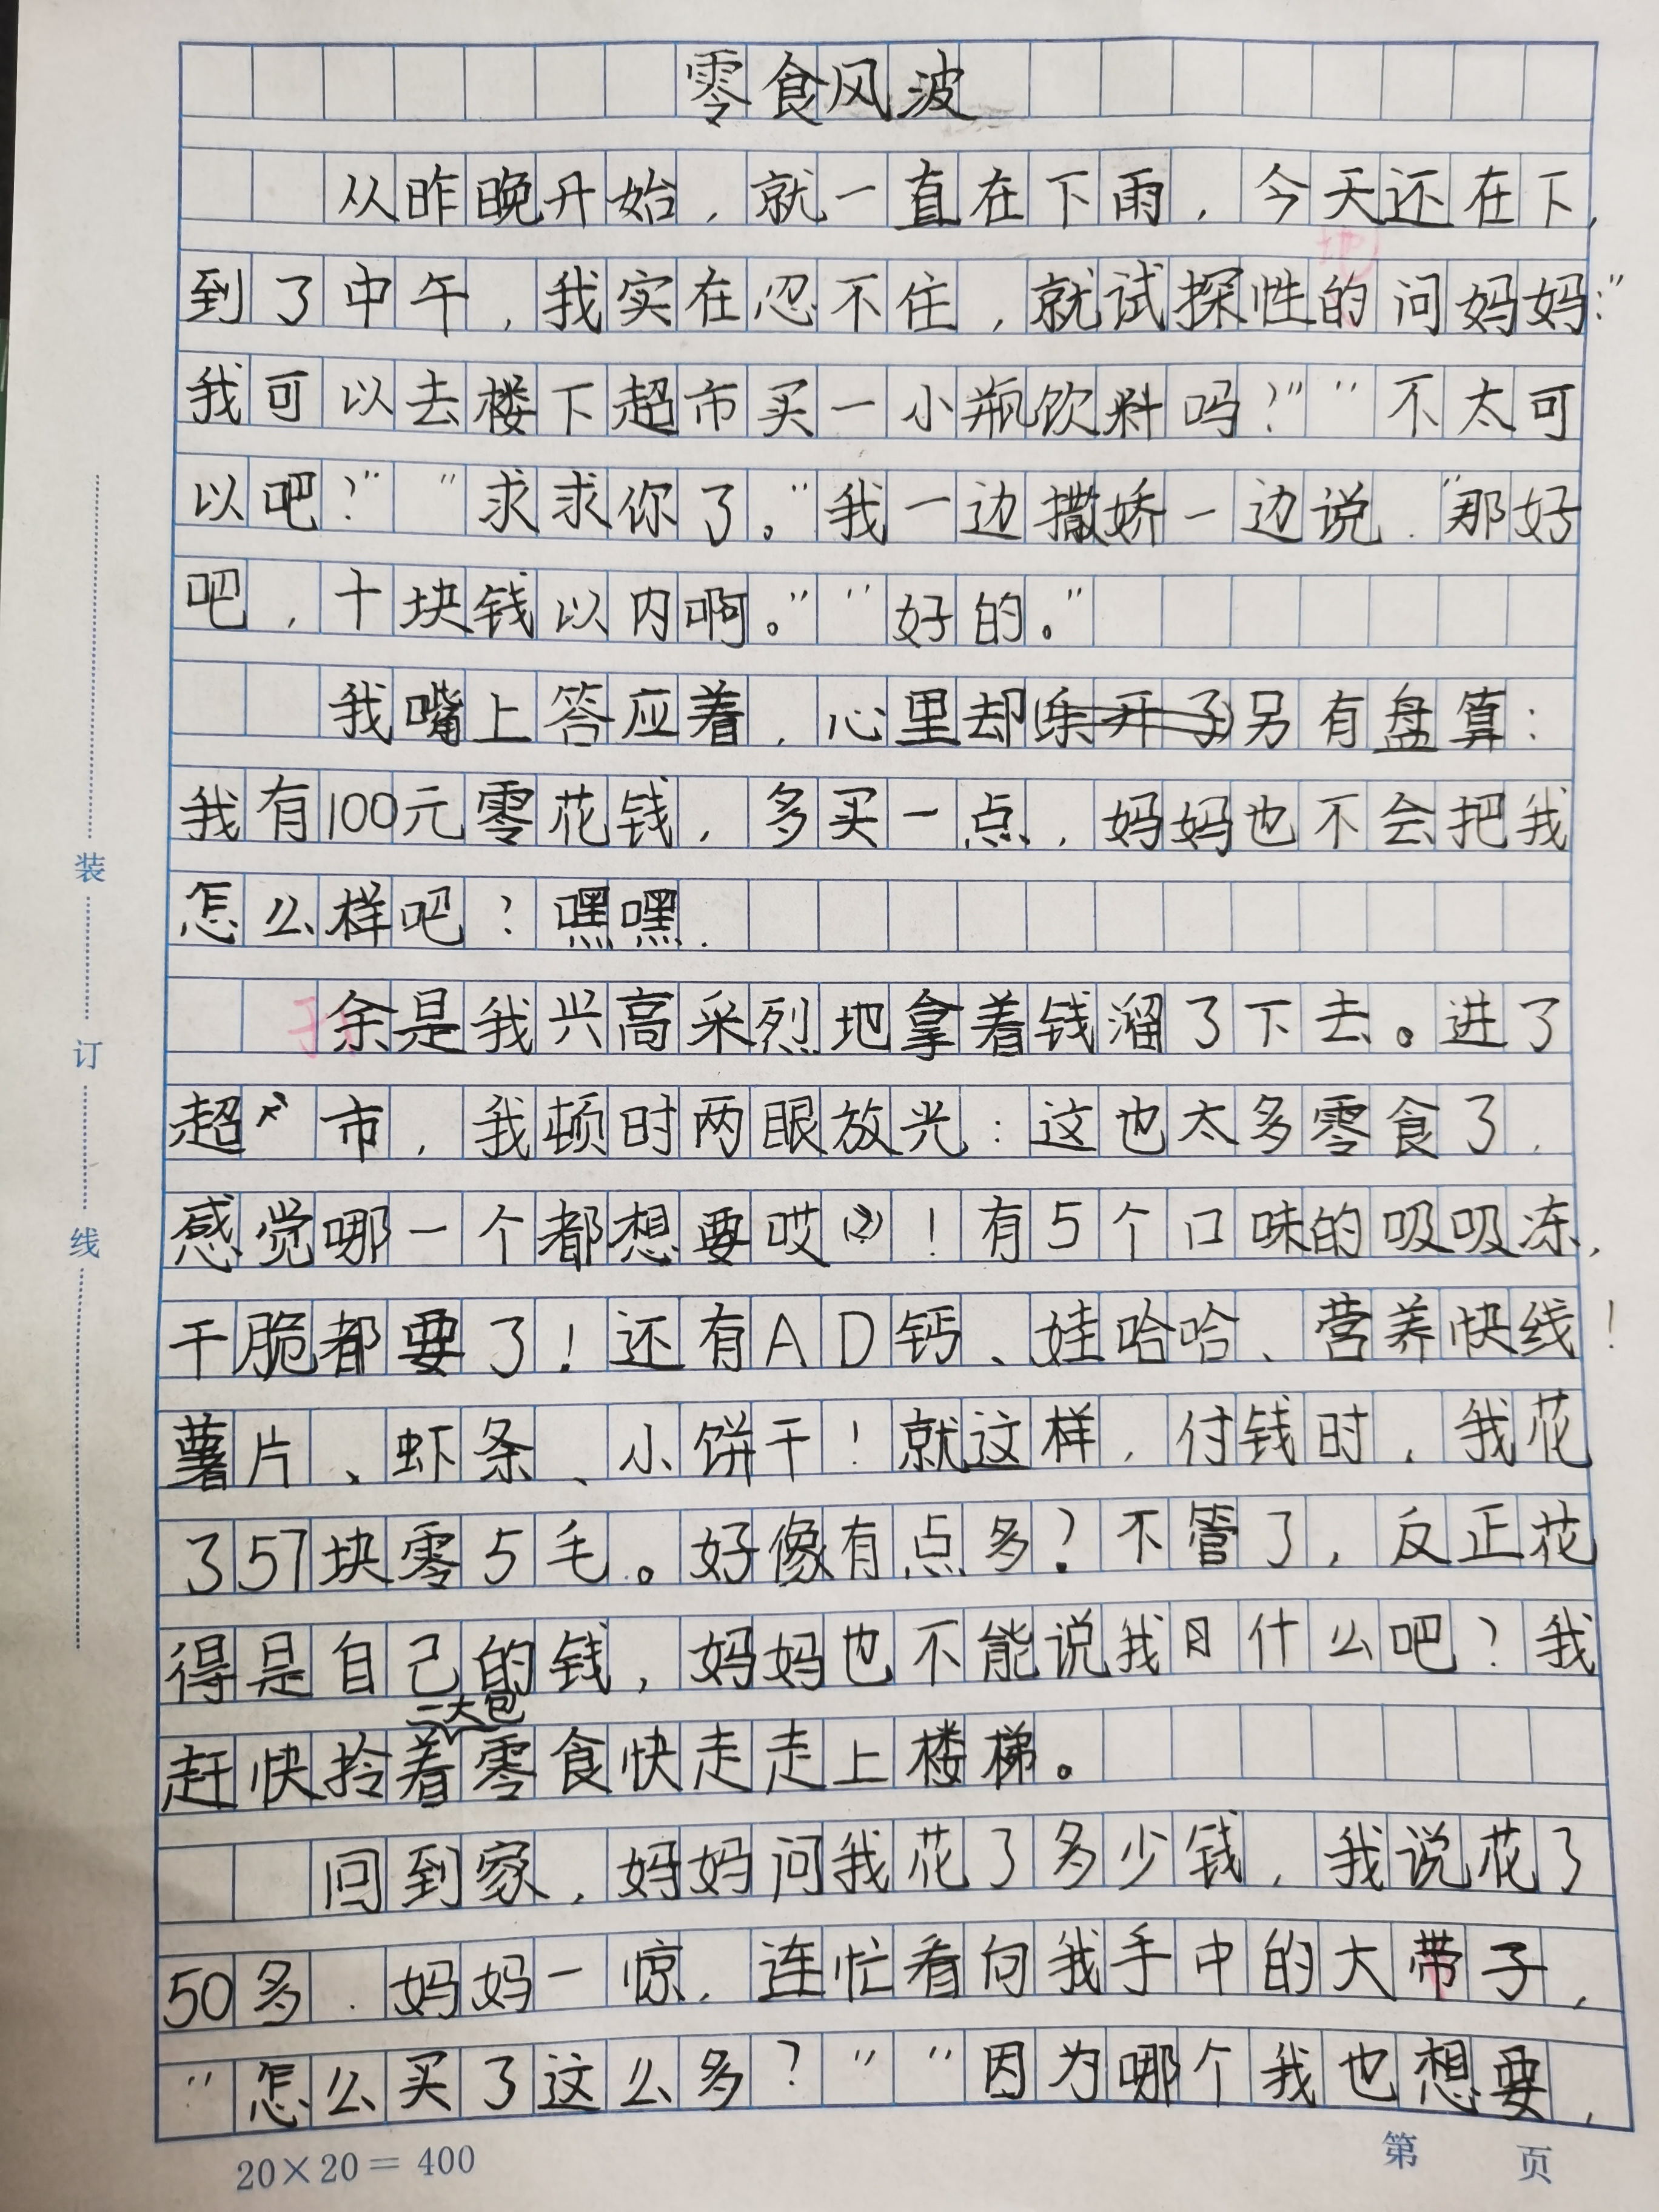 零食风波
从昨晚开始，就一直在下雨，今天还在下，
地
到了中午，我实在忍不住，就试探性的问妈妈："
我可以去楼下超市买一小瓶饮料吗？""不太可
以吧？""求求你了。"我一边撒娇一边说."那好
吧，十块钱以内啊。""好的。"
我嘴上答应着，心里却另有盘算：
我有100元零花钱，多买一点，妈妈也不会把我
怎么样吧？嘿嘿.
于
余是我兴高采烈地拿着钱溜了下去。进了
超市，我顿时两眼放光：这也太多零食了，
感觉哪一个都想要哎！有5个口味的吸吸冻，
干脆都要了！还有AD钙、娃哈哈、营养快线！
薯片、虾条、小饼干！就这样，付钱时，我花
了57块零5毛。好像有点多？不管了，反正花
得是自己的钱，妈妈也不能说我什么吧？我
二大包
赶快拎着零食快走走上楼梯。
回到家，妈妈问我花了多少钱，我说花了
50多.妈妈一惊，连忙看向我手中的大带子，
"怎么买了这么多？""因为哪个我也想要，
装
订
线
20×20=400
第 页